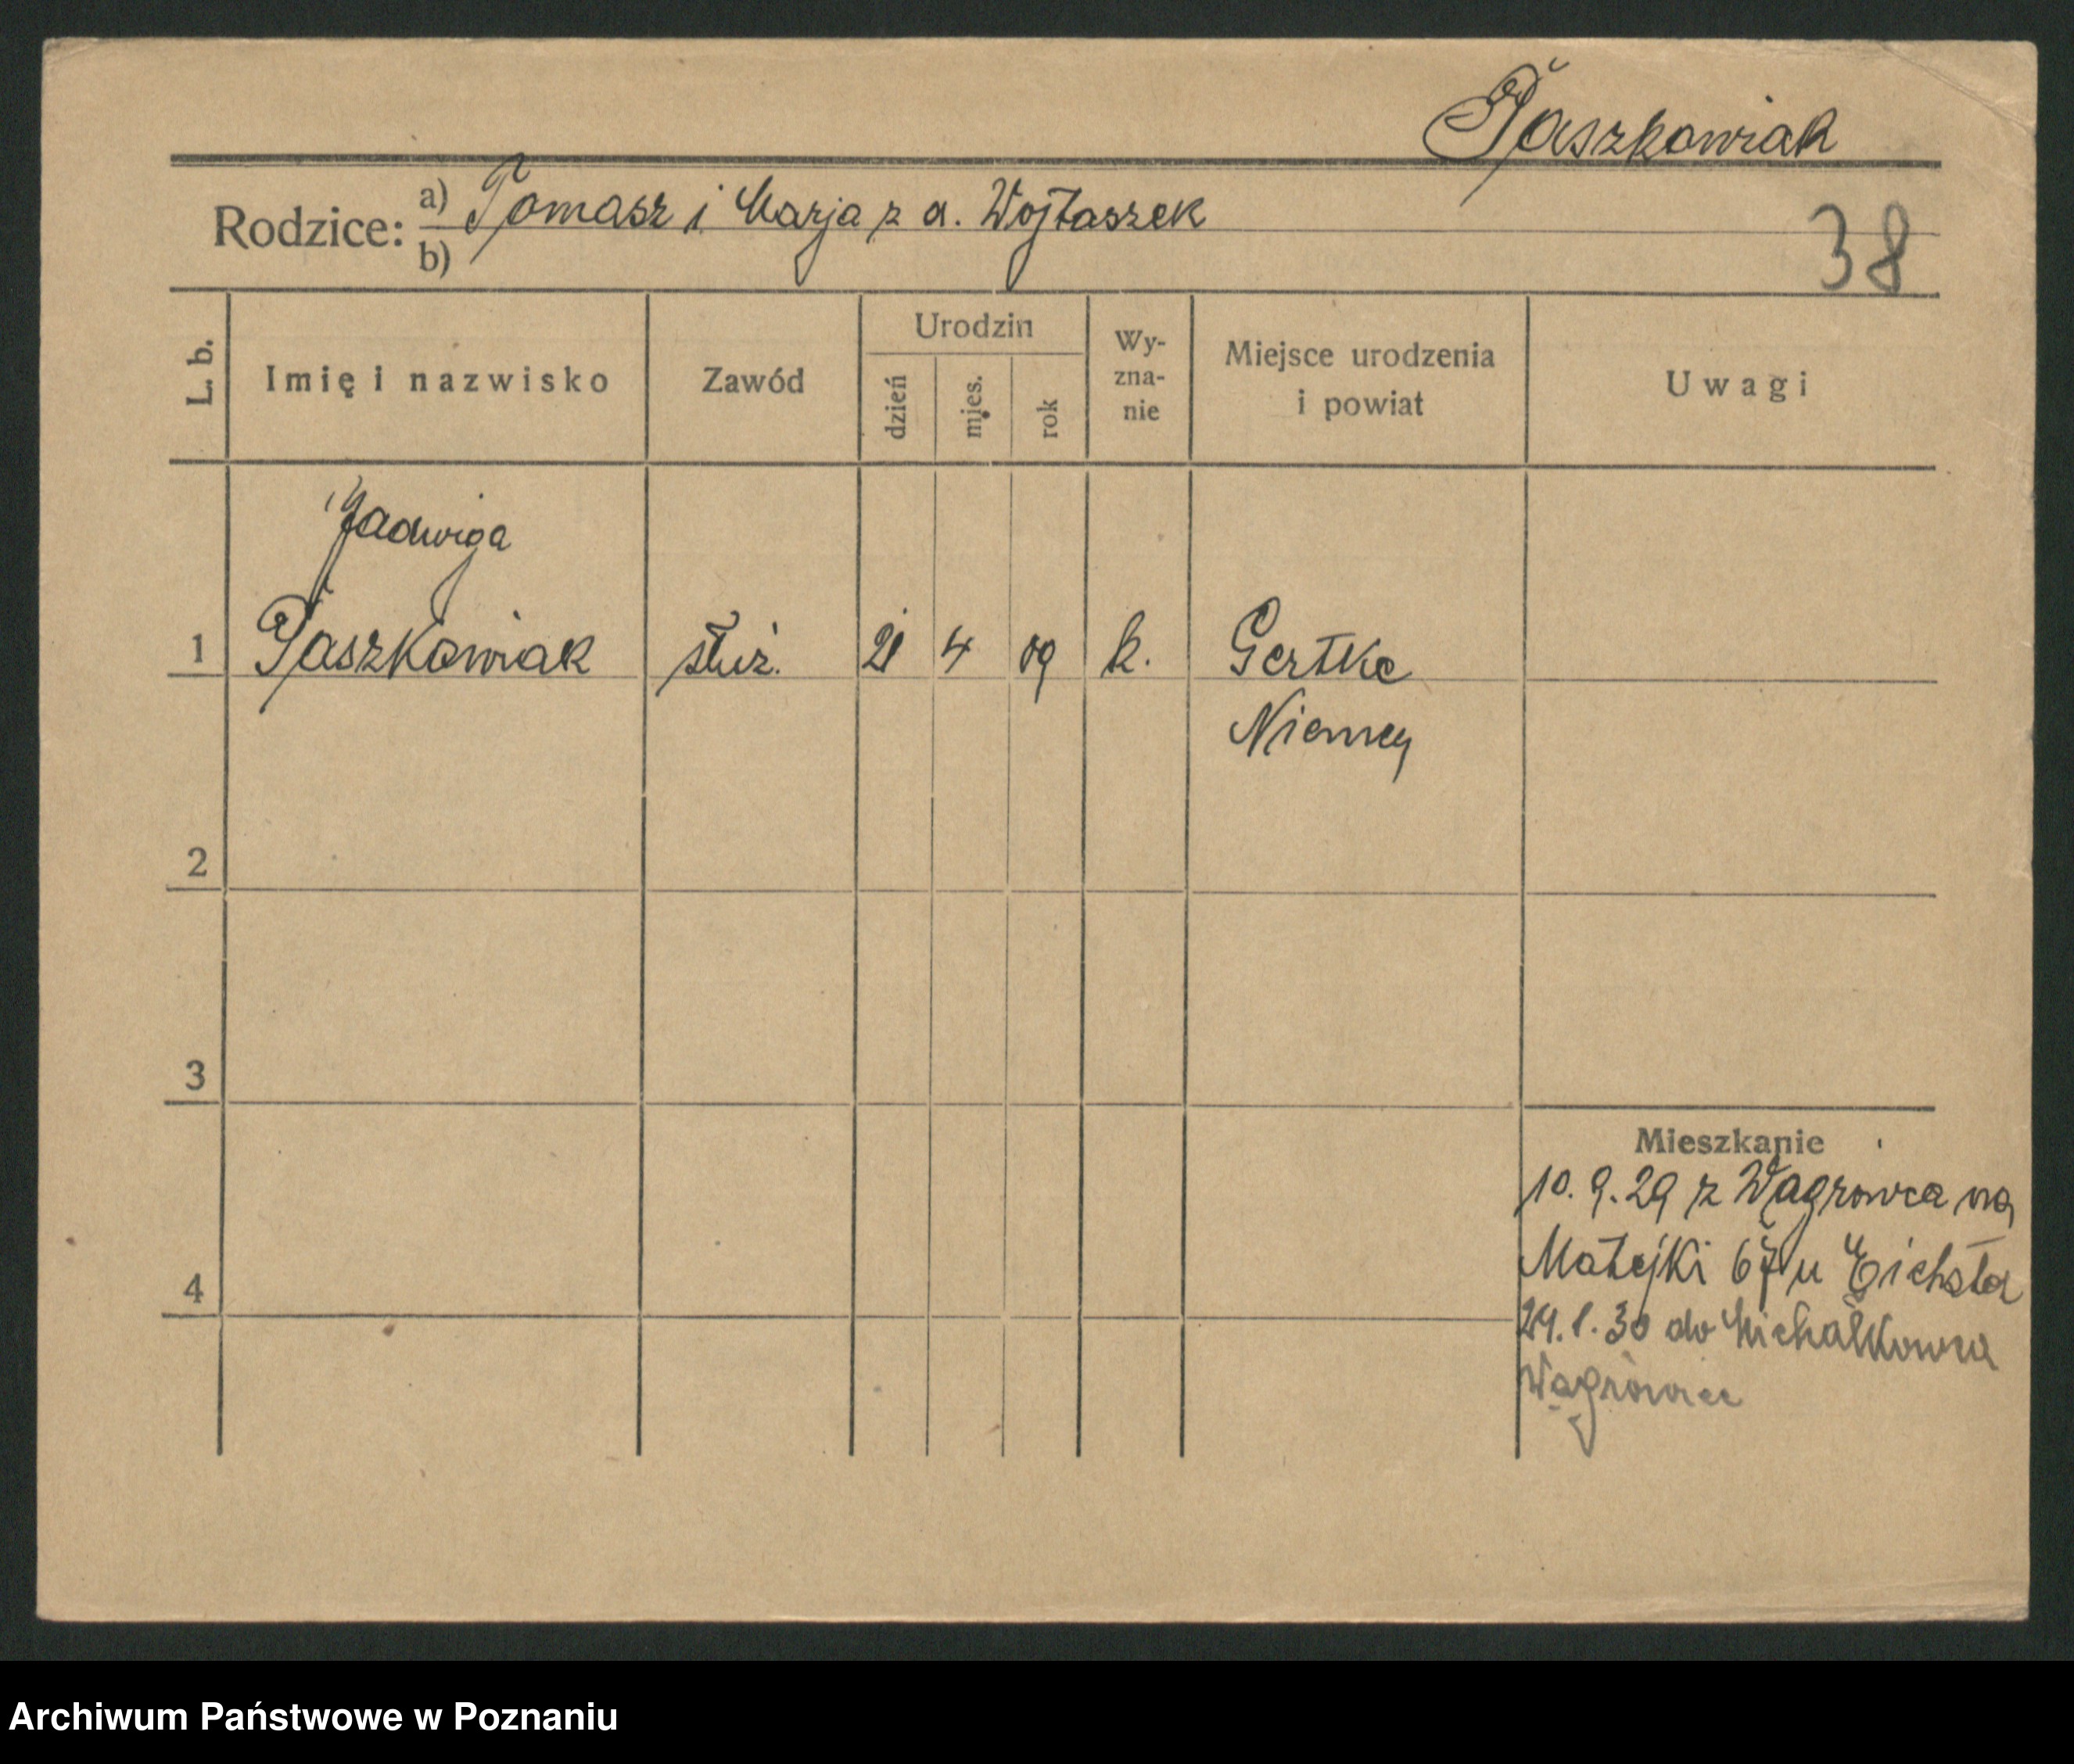 Paszkowiak
Rodzice: a) Tomasz i Marja z d. Wojtaszek
b)
38
L. b.
Imię i nazwisko
Zawód
Urodzin
dzień
mies.
rok
Wy-
zna-
nie
Miejsce urodzenia
i powiat
Uwagi
Jadwiga
1 Paszkowiak służ. 21 4 09 k. Gertke
Niemcy
2
3
4
Mieszkanie
10. 9. 29 z Wągrowca na
Matejki 67 u Eichsta
24. 1. 30 do Michałkowa
Wągrowiec
Archiwum Państwowe w Poznaniu